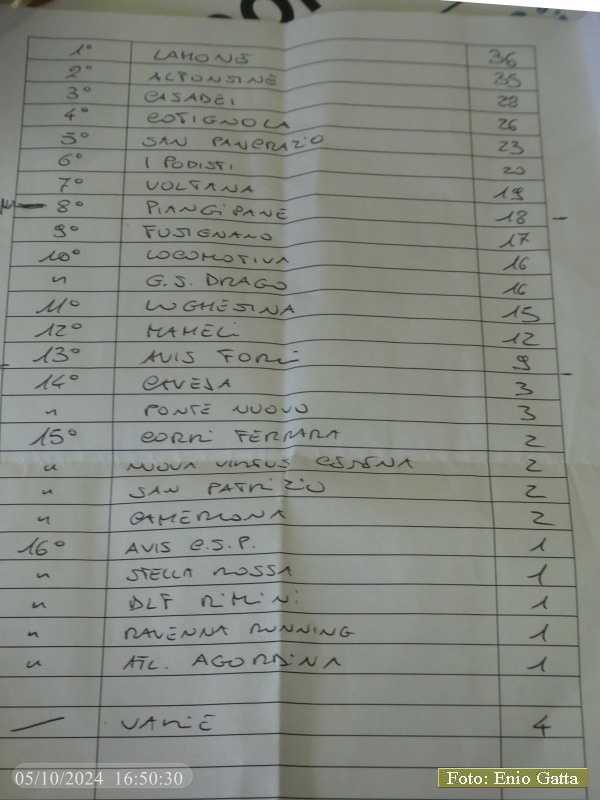 1° LAMONE 36
2° ALFONSINE 35
3° CASADEI 28
4° COTIGNOLA 26
5° SAN PANCRAZIO 23
6° I PODISTI 20
7° VOLTANA 19
8° PIANGIPANE 18
9° FUSIGNANO 17
10° LOCOMOTIVA 16
" G.S. DRAGO 16
11° LUGHESINA 15
12° MAMELI 12
13° AVIS FORLÌ 9
14° CAVEJA 3
" PONTE NUOVO 3
15° CORRI FERRARA 2
" NUOVA VIRTUS CESENA 2
" SAN PATRIZIO 2
" CAMERLONA 2
16° AVIS C.S.P. 1
" STELLA ROSSA 1
" DLF RIMINI 1
" RAVENNA RUNNING 1
" ATL. AGORDINA 1
— VARIE 4
05/10/2024 16:50:30
Foto: Enio Gatta